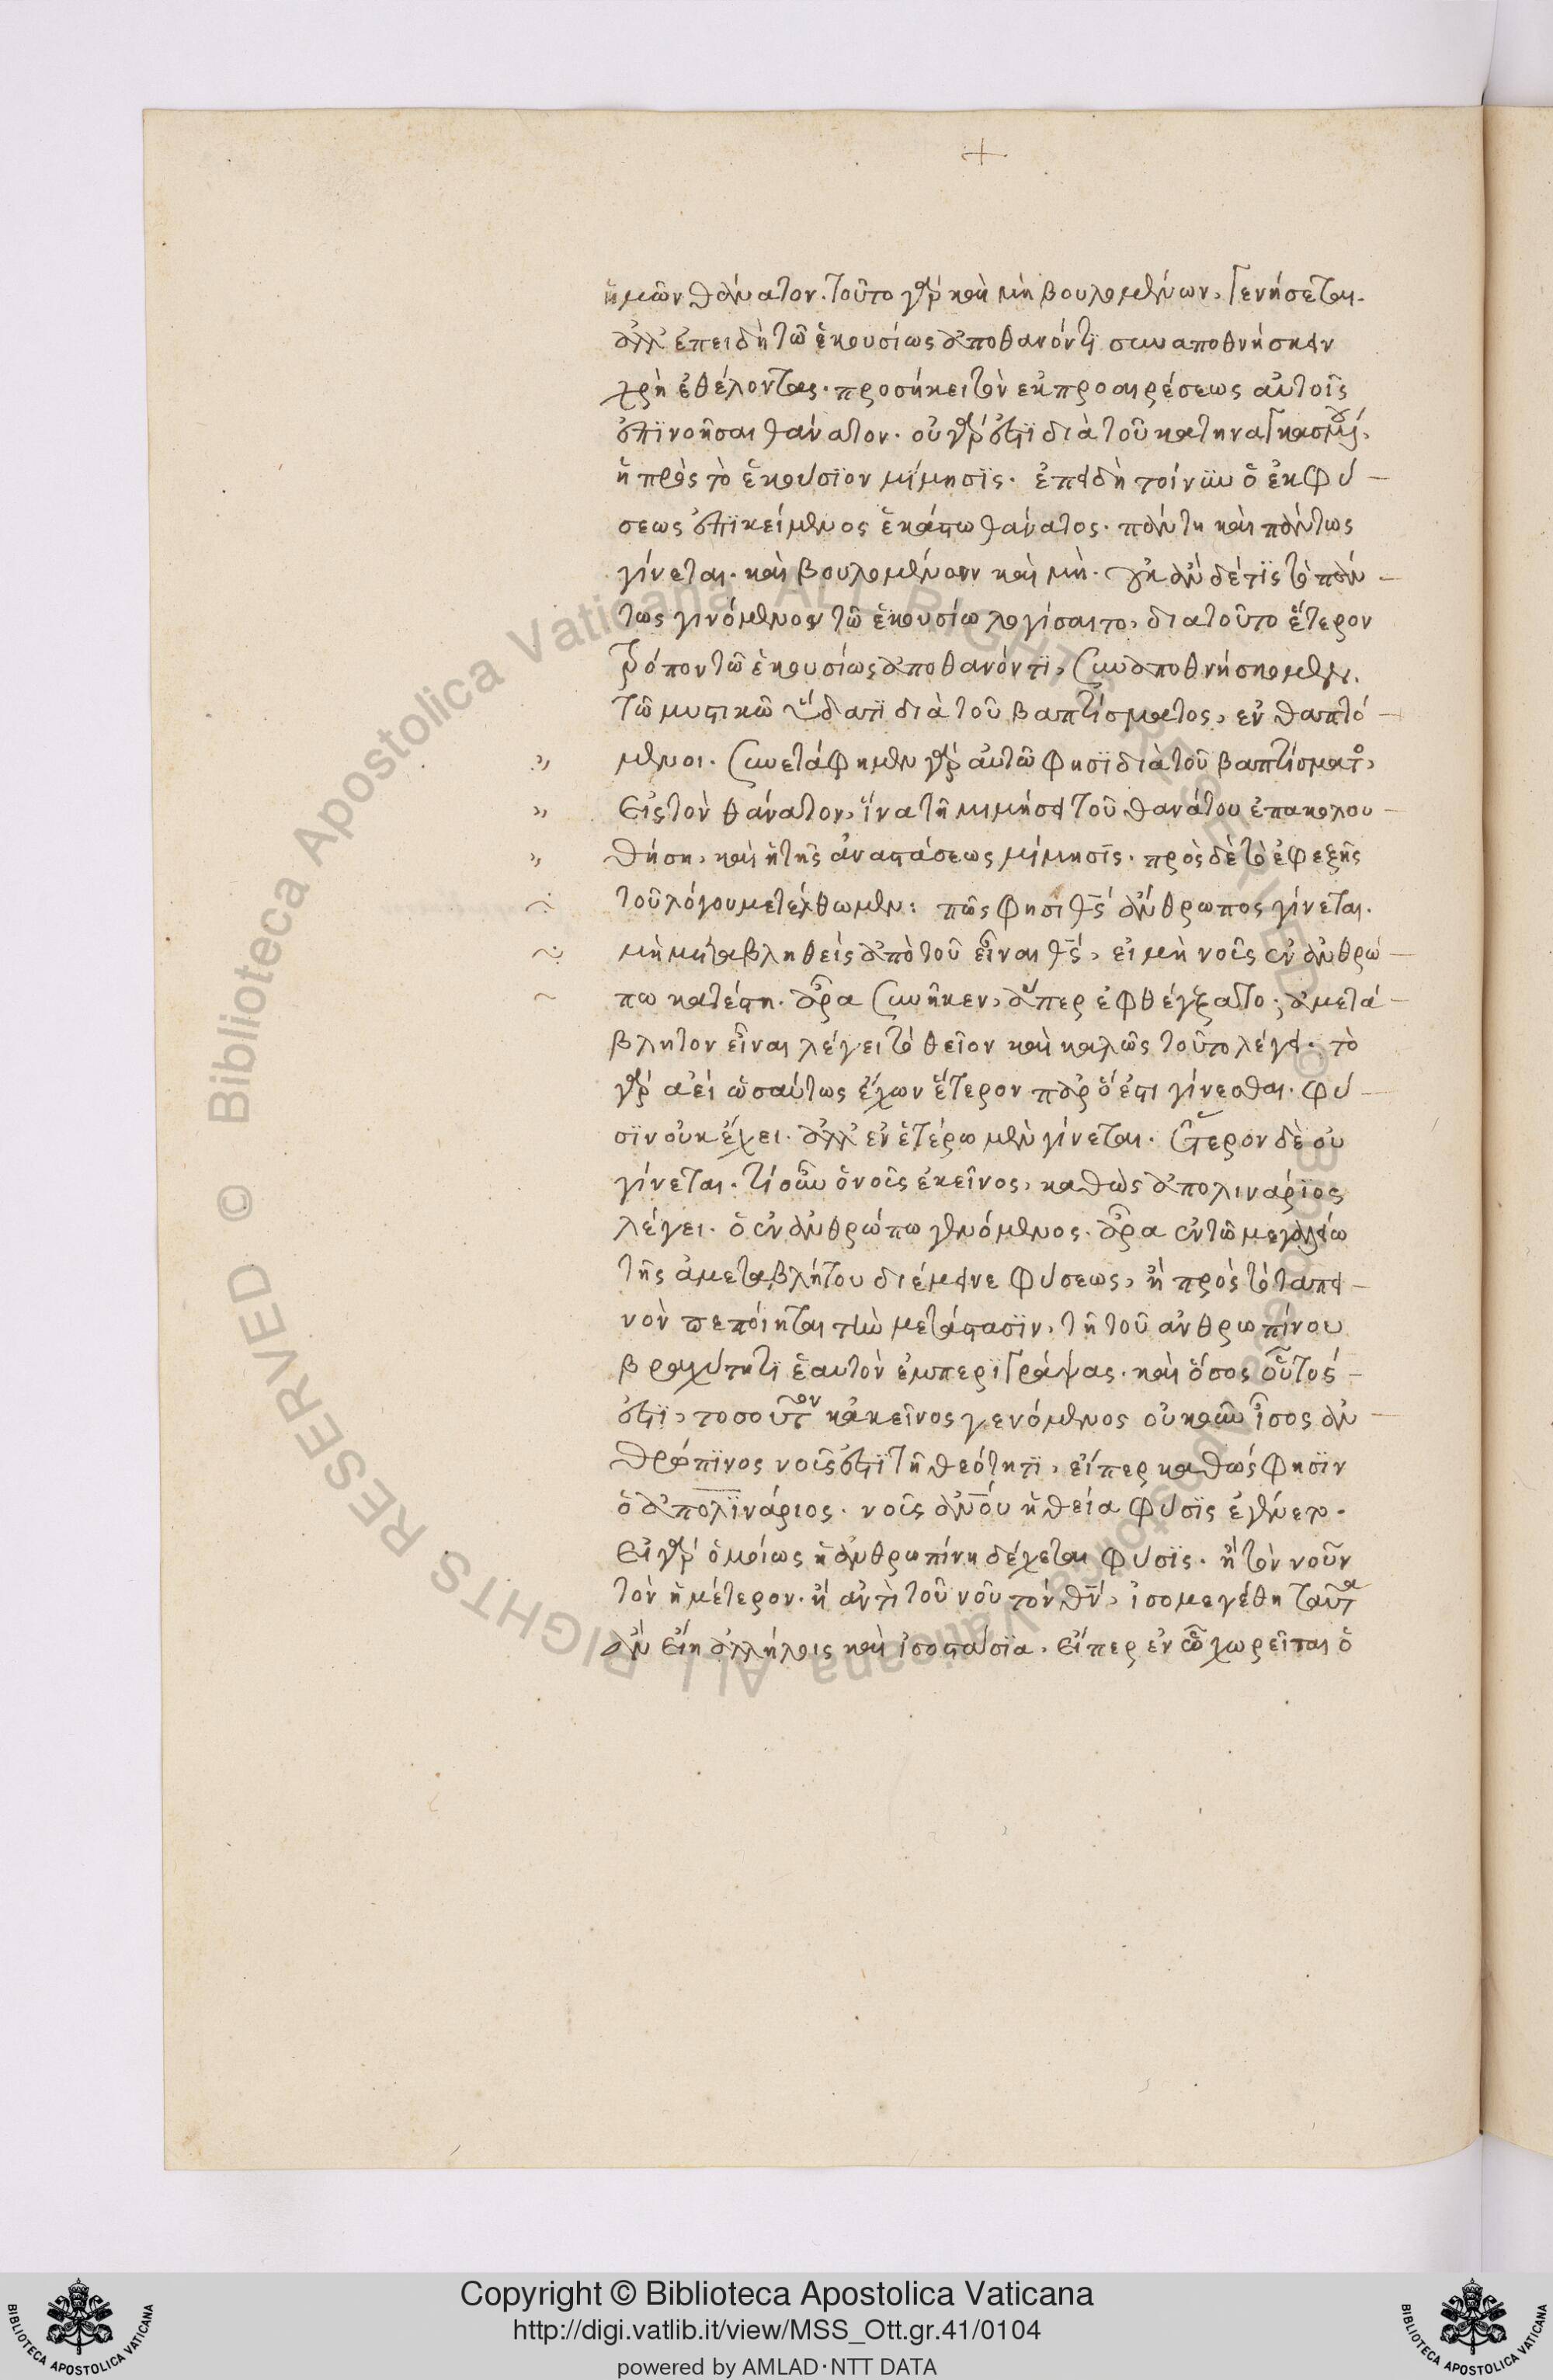 +
ἡμῶν θάνατον. τοῦτο γὰρ καὶ μὴ βουλομένων, γενήσεται.
ἀλλ' ἐπειδὴ τῶ ἑκουσίως ἀποθανόντι συναποθνήσκειν
χρὴ ἐθέλοντας. προσήκει τὸν ἐκ προαιρέσεως αὐτοῖς
ἐπινοῆσαι θάνατον. οὐ γάρ ἐστι διὰ τοῦ κατηναγκασμένου,
ἡ πρὸς τὸ ἑκούσϊον μίμησϊς. ἐπειδὴ τοίνϋν ὁ ἐκ φύ-
σεως ἐπικείμενος ἑκάστω θάνατος. πάντη καὶ πάντως
γίνεται. καὶ βουλομένων καὶ μή. οὐκ ἂν δέ τϊς τὸ πάν-
τως γινόμενον τῶ ἑκουσίω λογίσαιτο, διατοῦτο ἕτερον
τρόπον τῶ ἑκουσίως ἀποθανόντϊ, συναποθνήσκομεν.
τῶ μυστικῶ ὕδατϊ διὰ τοῦ βαπτίσματος, ἐν θαπτό-
μενοι. συνετάφημεν γὰρ αὐτῶ φησῒ διὰ τοῦ βαπτίσματος,
εἰς τὸν θάνατον, ἵνα τῆ μιμήσει τοῦ θανάτου ἐπακολου-
θήση, καὶ ἡ τῆς ἀναστάσεως μίμησϊς. πρὸς δὲ τὸ ἐφεξῆς
τοῦ λόγου μετέλθωμεν: πῶς φησι θς ἄνθρωπος γίνεται.
μὴ μεταβληθεὶς ἀπὸ τοῦ εἶναι θς, εἰ μὴ νοῦς ἐν ἀνθρώ-
πω κατέστη. ἆρα συνῆκεν, ἅπερ ἐφθέγξατο; ἀμετά-
βλητον εἶναι λέγει τὸ θεῖον καὶ καλῶς τοῦτο λέγει. τὸ
γὰρ ἀεὶ ὡσαύτως ἔχων ἕτερον παρ' ὅ ἐστι γίνεσθαι. φύ-
σϊν οὐκ ἔχει. ἀλλ' ἐν ἑτέρω μὲν γίνεται. ἕτερον δὲ οὐ
γίνεται. τί οὖν ὁ νοῦς ἐκεῖνος, καθὼς ἀπολινάρϊος
λέγει. ὁ ἐν ἀνθρώπω γενόμενος. ἆρα ἐν τῶ μεγαλείω
τῆς ἀμεταβλήτου διέμεινε φύσεως, ἢ πρὸς τὸ ταπει-
νὸν πεποίηται τὴν μετάστασϊν, τῆ τοῦ ἀνθρωπίνου
βραχύτητι ἑαυτὸν ἐμπερϊγράψας. καὶ ὅσος οὗτός
ἐστϊ, τοσοῦτον κἀκεῖνος γενόμενος οὐκοῦν ἶσος ἀν-
θρώπϊνος νοῦς ἐστϊ τῆ θεότητϊ, εἴπερ καθώς φησϊν
ὁ ἀπολϊνάριος. νοῦς ἀνου ἡ θεία φύσϊς ἐγένετο.
εἰ γὰρ ὁμοίως ἡ ἀνθρωπίνη δέχεται φύσϊς. ἢ τὸν νοῦν
τὸν ἡμέτερον. ἢ ἀντὶ τοῦ νοῦ τὸν θν, ἰσομεγέθη ταῦτα
ἂν εἴη ἀλλήλοις καὶ ἰσοστάσϊα. εἴπερ ἐν ὧ χωρεῖται ὁ
© Biblioteca Apostolica Vaticana ALL RIGHTS RESERVED
Copyright © Biblioteca Apostolica Vaticana
http://digi.vatlib.it/view/MSS_Ott.gr.41/0104
powered by AMLAD·NTT DATA
BIBLIOTECA APOSTOLICA VATICANA
BIBLIOTECA APOSTOLICA VATICANA